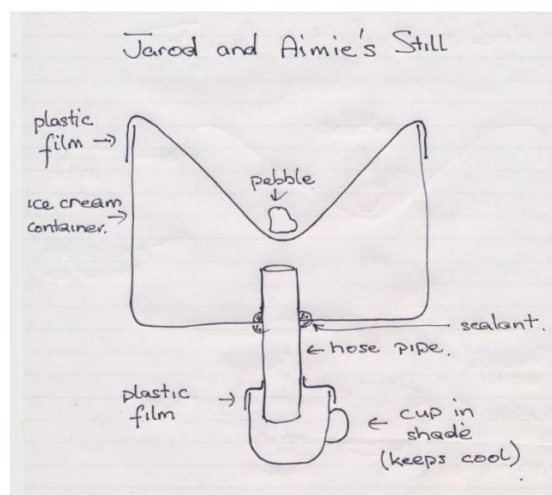 Jarod and Aimie's Still
plastic
film →
pebble
ice cream
container.
sealant.
hose pipe.
plastic
film
cup in
shade
(keeps cool)